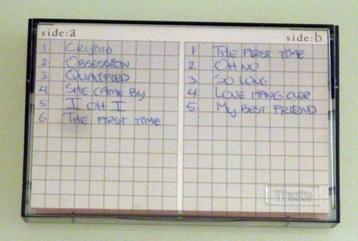 side:a
1 CRYING
2 OBSESSION
3 QUALIFIED
4 SHE CAME BY
5 I OH I
6 THE FIRST TIME
side:b
1. THE FIRST TIME
2. OH NO
3. SO LONG
4. LOVE HANG OVER
5. MY BEST FRIEND